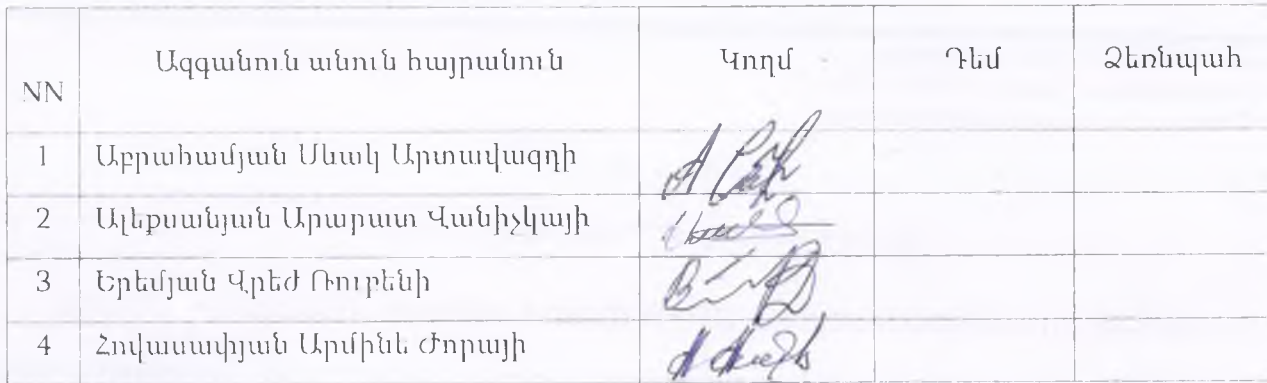 NN Ազգանուն անուն հայրանուն Կողմ Դեմ Ձեռնպահ
1 Աբրահամյան Սևակ Արտավազդի
2 Ալեքսանյան Արարատ Վանիչկայի
3 Երեմյան Վրեժ Ռուբենի
4 Հովասափյան Արմինե Ժորայի